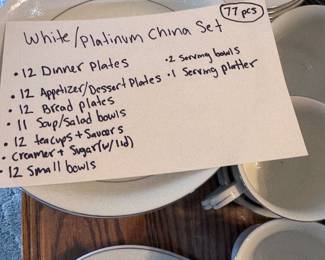 77 pcs
White/Platinum China Set
• 12 Dinner Plates
• 12 Appetizer/Dessert Plates
• 12 Bread plates
• 11 Soup/salad bowls
• 12 teacups + Saucers
• creamer + Sugar (w/lid)
• 12 Small bowls
• 2 Serving bowls
• 1 Serving platter